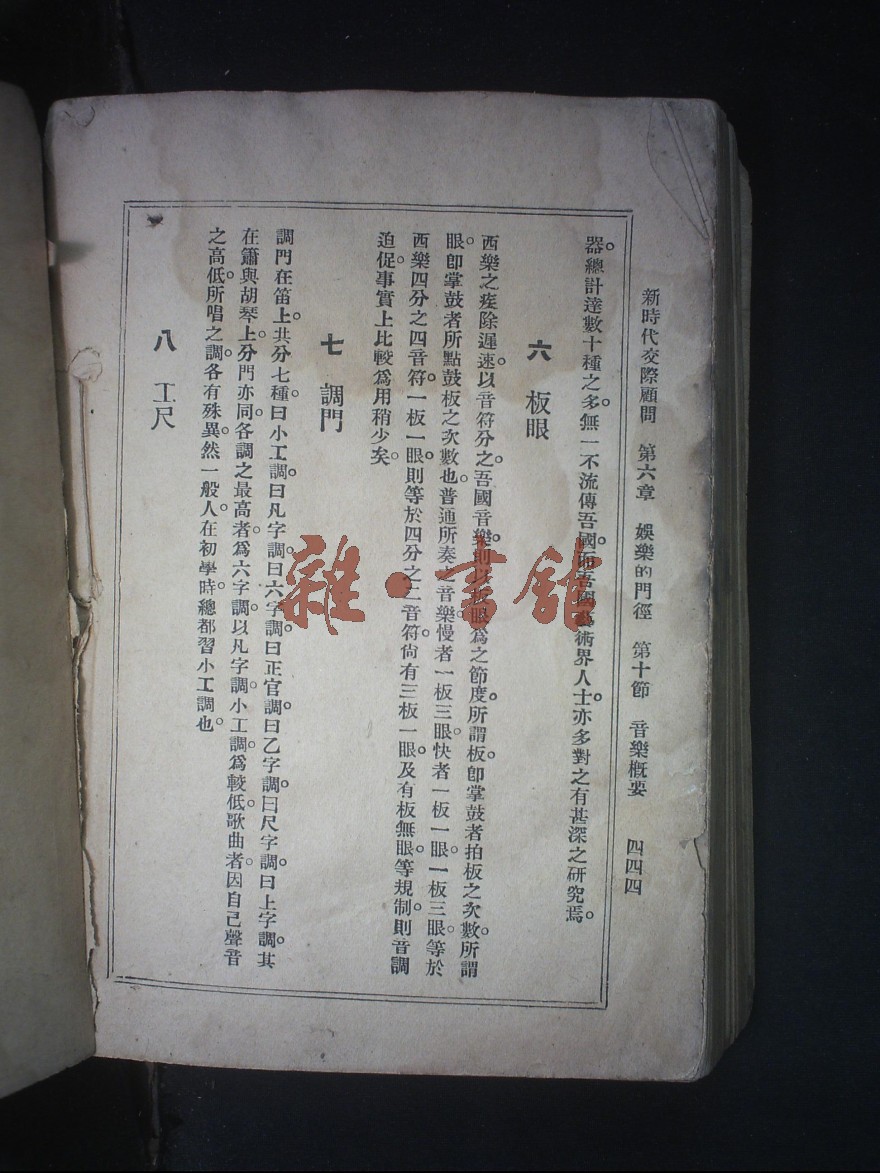 新時代交際顧問　第六章　娛樂的門徑　第十節　音樂概要　四四四
器。總計達數十種之多。無一不流傳吾國。而吾國藝術界人士。亦多對之有甚深之研究焉。
六　板眼
西樂之疾除遲速。以音符分之。吾國音樂。則以板眼為之節度。所謂板。卽掌鼓者拍板之次數。所謂
眼。卽掌鼓者所點鼓板之次數也。普通所奏之音樂。慢者一板三眼。快者一板一眼。一板三眼。等於
西樂四分之四音符。一板一眼。則等於四分之二音符。尙有三板一眼。及有板無眼。等規制。則音調
迫促。事實上比較為用稍少矣。
七　調門
調門在笛上。共分七種。曰小工調。曰凡字調。曰六字調。曰正官調。曰乙字調。曰尺字調。曰上字調。其
在簫與胡琴上。分門亦同。各調之最高者。為六字調。以凡字調。小工調。為較低。歌曲者。因自己聲音
之高低。所唱之調。各有殊異。然一般人在初學時。總都習小工調也。
八　工尺
雜·書館